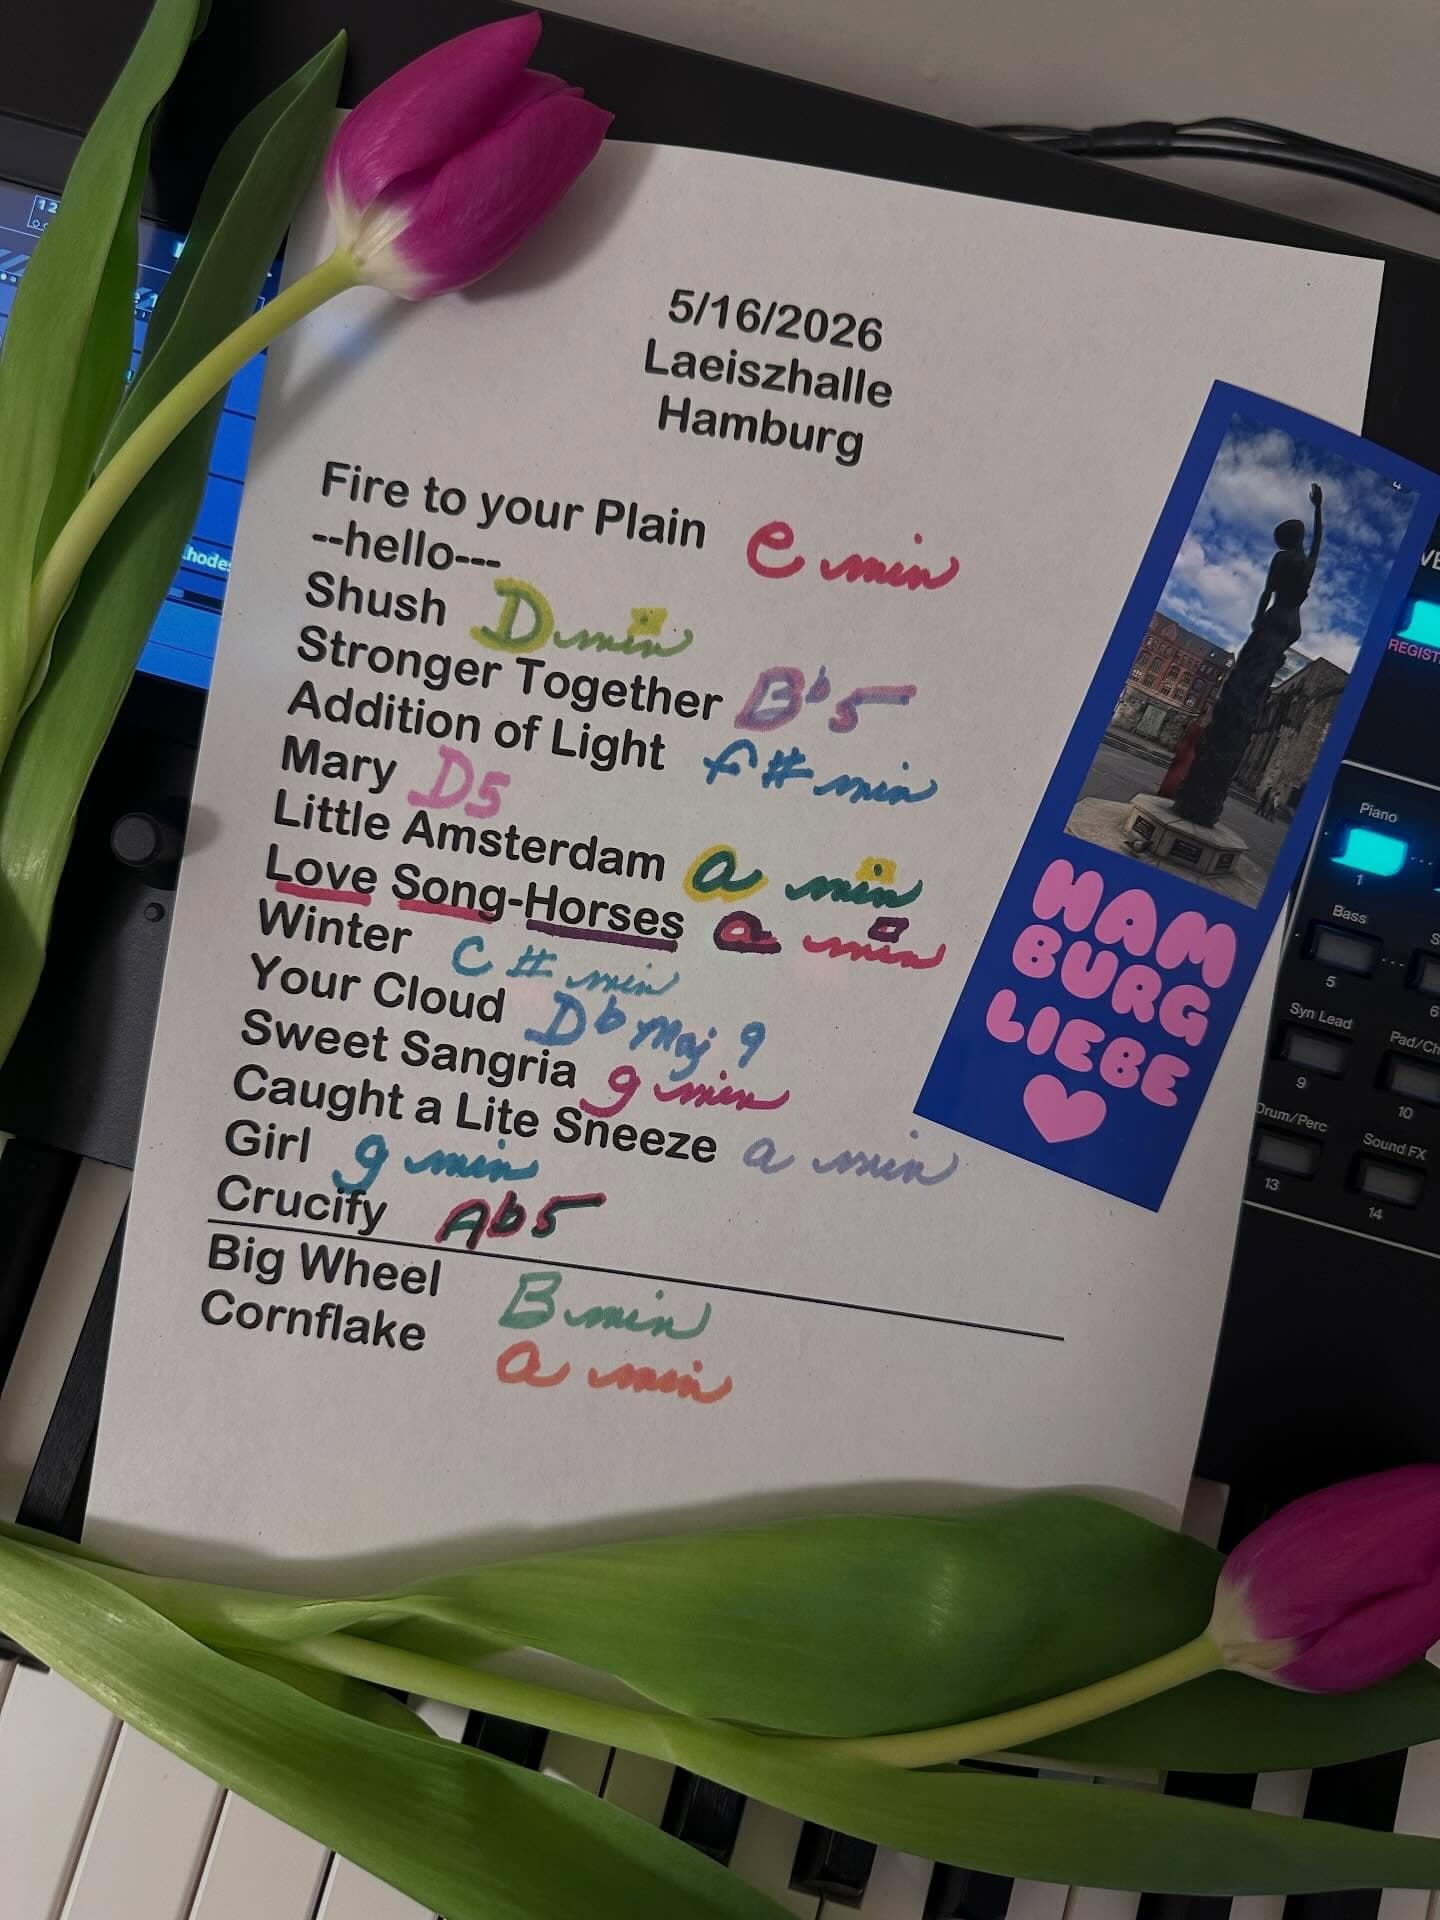 5/16/2026
Laeiszhalle
Hamburg
Fire to your Plain e min
--hello---
Shush D min
Stronger Together Bb5
Addition of Light f# min
Mary D5
Little Amsterdam a min
Love Song-Horses a min
Winter C# min
Your Cloud Db Maj 9
Sweet Sangria g min
Caught a Lite Sneeze a min
Girl g min
Crucify Ab5
Big Wheel B min
Cornflake a min
HAM
BURG
LIEBE
Piano
1
Bass
5
6
Syn Lead
9
10
13
Sound FX
14